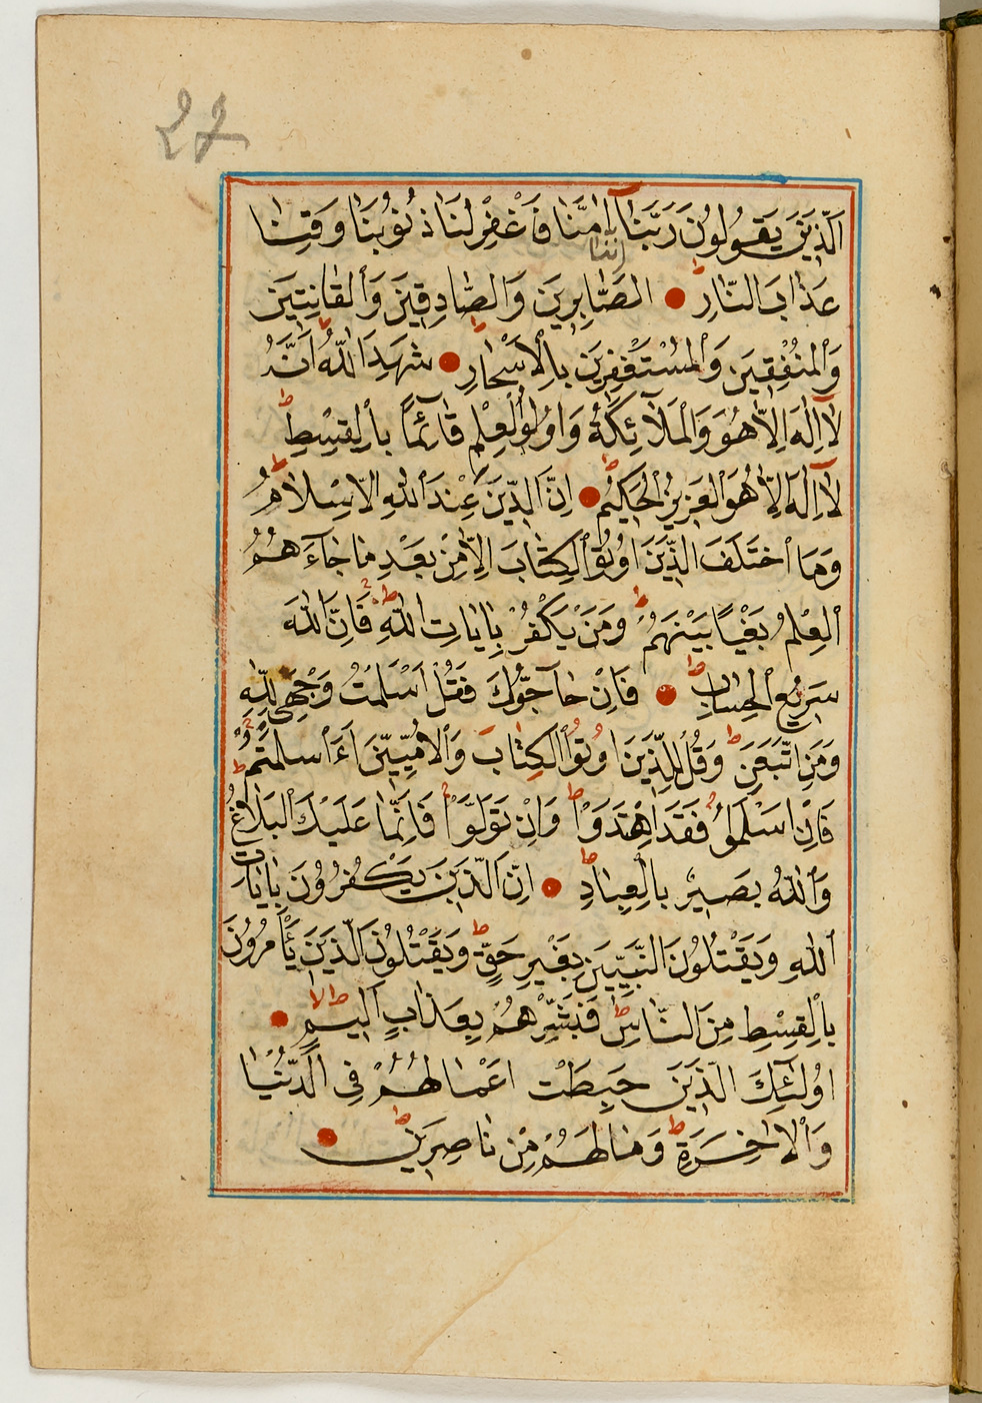 27
اَلَّذِينَ يَقُولُونَ رَبَّنَا اٰمَنَّا فَاغْفِرْ لَنَا ذُنُوبَنَا وَقِنَا
اننا
عَذَابَ النَّارِ الصَّابِرِينَ وَالصَّادِقِينَ وَالْقَانِتِينَ
وَالْمُنْفِقِينَ وَالْمُسْتَغْفِرِينَ بِالْاَسْحَارِ شَهِدَ اللّٰهُ اَنَّهُ
لَا اِلٰهَ اِلَّا هُوَ وَالْمَلَائِكَةُ وَاُولُوا الْعِلْمِ قَائِمًا بِالْقِسْطِ
لَا اِلٰهَ اِلَّا هُوَ الْعَزِيزُ الْحَكِيمُ اِنَّ الدِّينَ عِنْدَ اللّٰهِ الْاِسْلَامُ
وَمَا اخْتَلَفَ الَّذِينَ اُوتُوا الْكِتَابَ اِلَّا مِنْ بَعْدِ مَا جَاءَهُمُ
الْعِلْمُ بَغْيًا بَيْنَهُمْ وَمَنْ يَكْفُرْ بِاٰيَاتِ اللّٰهِ فَاِنَّ اللّٰهَ
سَرِيعُ الْحِسَابِ فَاِنْ حَاجُّوكَ فَقُلْ اَسْلَمْتُ وَجْهِيَ لِلّٰهِ
وَمَنِ اتَّبَعَنِ وَقُلْ لِلَّذِينَ اُوتُوا الْكِتَابَ وَالْاُمِّيِّينَ ءَاَسْلَمْتُمْ
فَاِنْ اَسْلَمُوا فَقَدِ اهْتَدَوْا وَاِنْ تَوَلَّوْا فَاِنَّمَا عَلَيْكَ الْبَلَاغُ
وَاللّٰهُ بَصِيرٌ بِالْعِبَادِ اِنَّ الَّذِينَ يَكْفُرُونَ بِاٰيَاتِ
اللّٰهِ وَيَقْتُلُونَ النَّبِيِّينَ بِغَيْرِ حَقٍّ وَيَقْتُلُونَ الَّذِينَ يَأْمُرُونَ
بِالْقِسْطِ مِنَ النَّاسِ فَبَشِّرْهُمْ بِعَذَابٍ اَلِيمٍ
اُولٰئِكَ الَّذِينَ حَبِطَتْ اَعْمَالُهُمْ فِي الدُّنْيَا
وَالْاٰخِرَةِ وَمَا لَهُمْ مِنْ نَاصِرِينَ